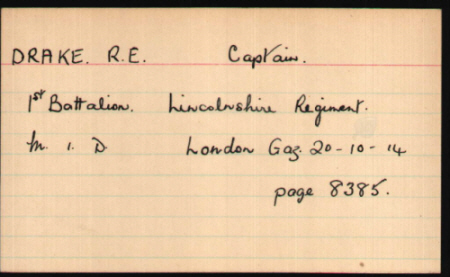 DRAKE. R.E. Captain.
1st Battalion. Lincolnshire Regiment.
M. 1. D London Gaz. 20-10-14
page 8385.